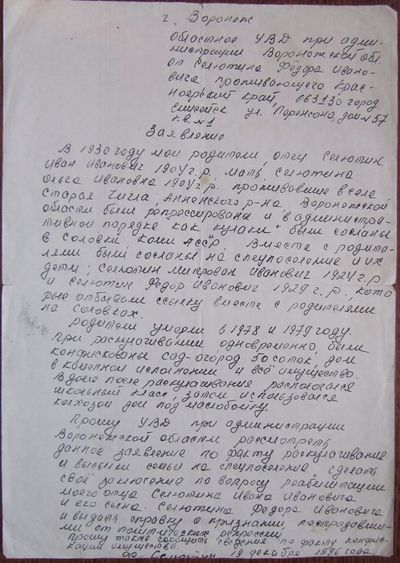 г. Воронеж
областное УВД при адми-
нистрации Воронежской обл.
от Селютина Фёдора Ивано-
вича проживающего Крас-
ноярский край, 663130 город
Енисейск ул. Перенсона, дом №57
кв. №1
Заявление
В 1930 году мои родители, отец Селютин
Иван Иванович 1904 г.р. мать, Селютина
Ольга Ивановна 1904 г.р. проживавшие в селе
Старая Чигла, Аннинского р-на Воронежской
области были репрессированы и в администра-
тивном порядке как "кулаки" были сосланы
в Соловки, Коми АССР. Вместе с родите-
лями были сосланы на спецпоселение и их
дети; Селютин Митрофан Иванович 1924 г.р.
и Селютин Фёдор Иванович 1929 г.р., кото-
рые отбывали ссылку вместе с родителями
на Соловках.
Родители умерли в 1978 и 1979 году.
При раскулачивании одновременно, были
конфискованы сад-огород 50 соток, дом
в кирпичном исполнении и всё имущество.
В доме после раскулачивания располагался
школьный класс, затем использовался
колхозом дом под маслобойку.
Прошу УВД при администрации
Воронежской области рассмотреть
данное заявление по факту раскулачивания
и высылки семьи на спецпоселение, сделать
своё заключение по вопросу реабилитации
моего отца Селютина Ивана Ивановича
и его сына Селютина Федора Ивановича
и выдать справку о признании, пострадавши-
ми от политических репрессий.
Прошу также сообщить сведения по факту конфис-
кации имущества.
19 декабря 1996 года